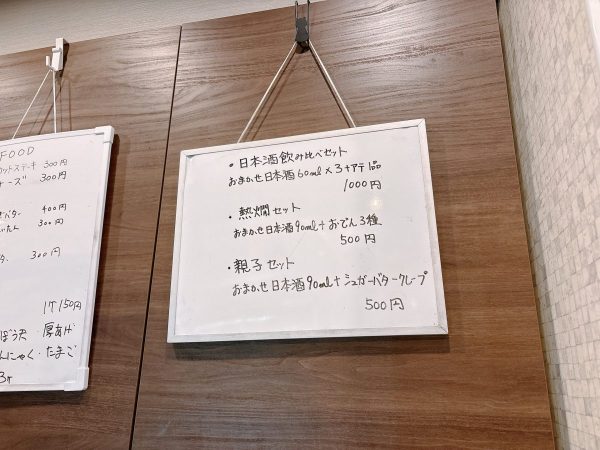 FOOD
ットステキ 300円
ーズ 300円
バター 400円
300円
300円
1ケ 150円
ぼう天・厚あげ
んにゃく・たまご
・日本酒飲み比べセット
おまかせ日本酒60ml×3+アテ1品
1000円
・熱燗セット
おまかせ日本酒90ml+おでん3種
500円
・親子セット
おまかせ日本酒90ml+シュガーバタークレープ
500円